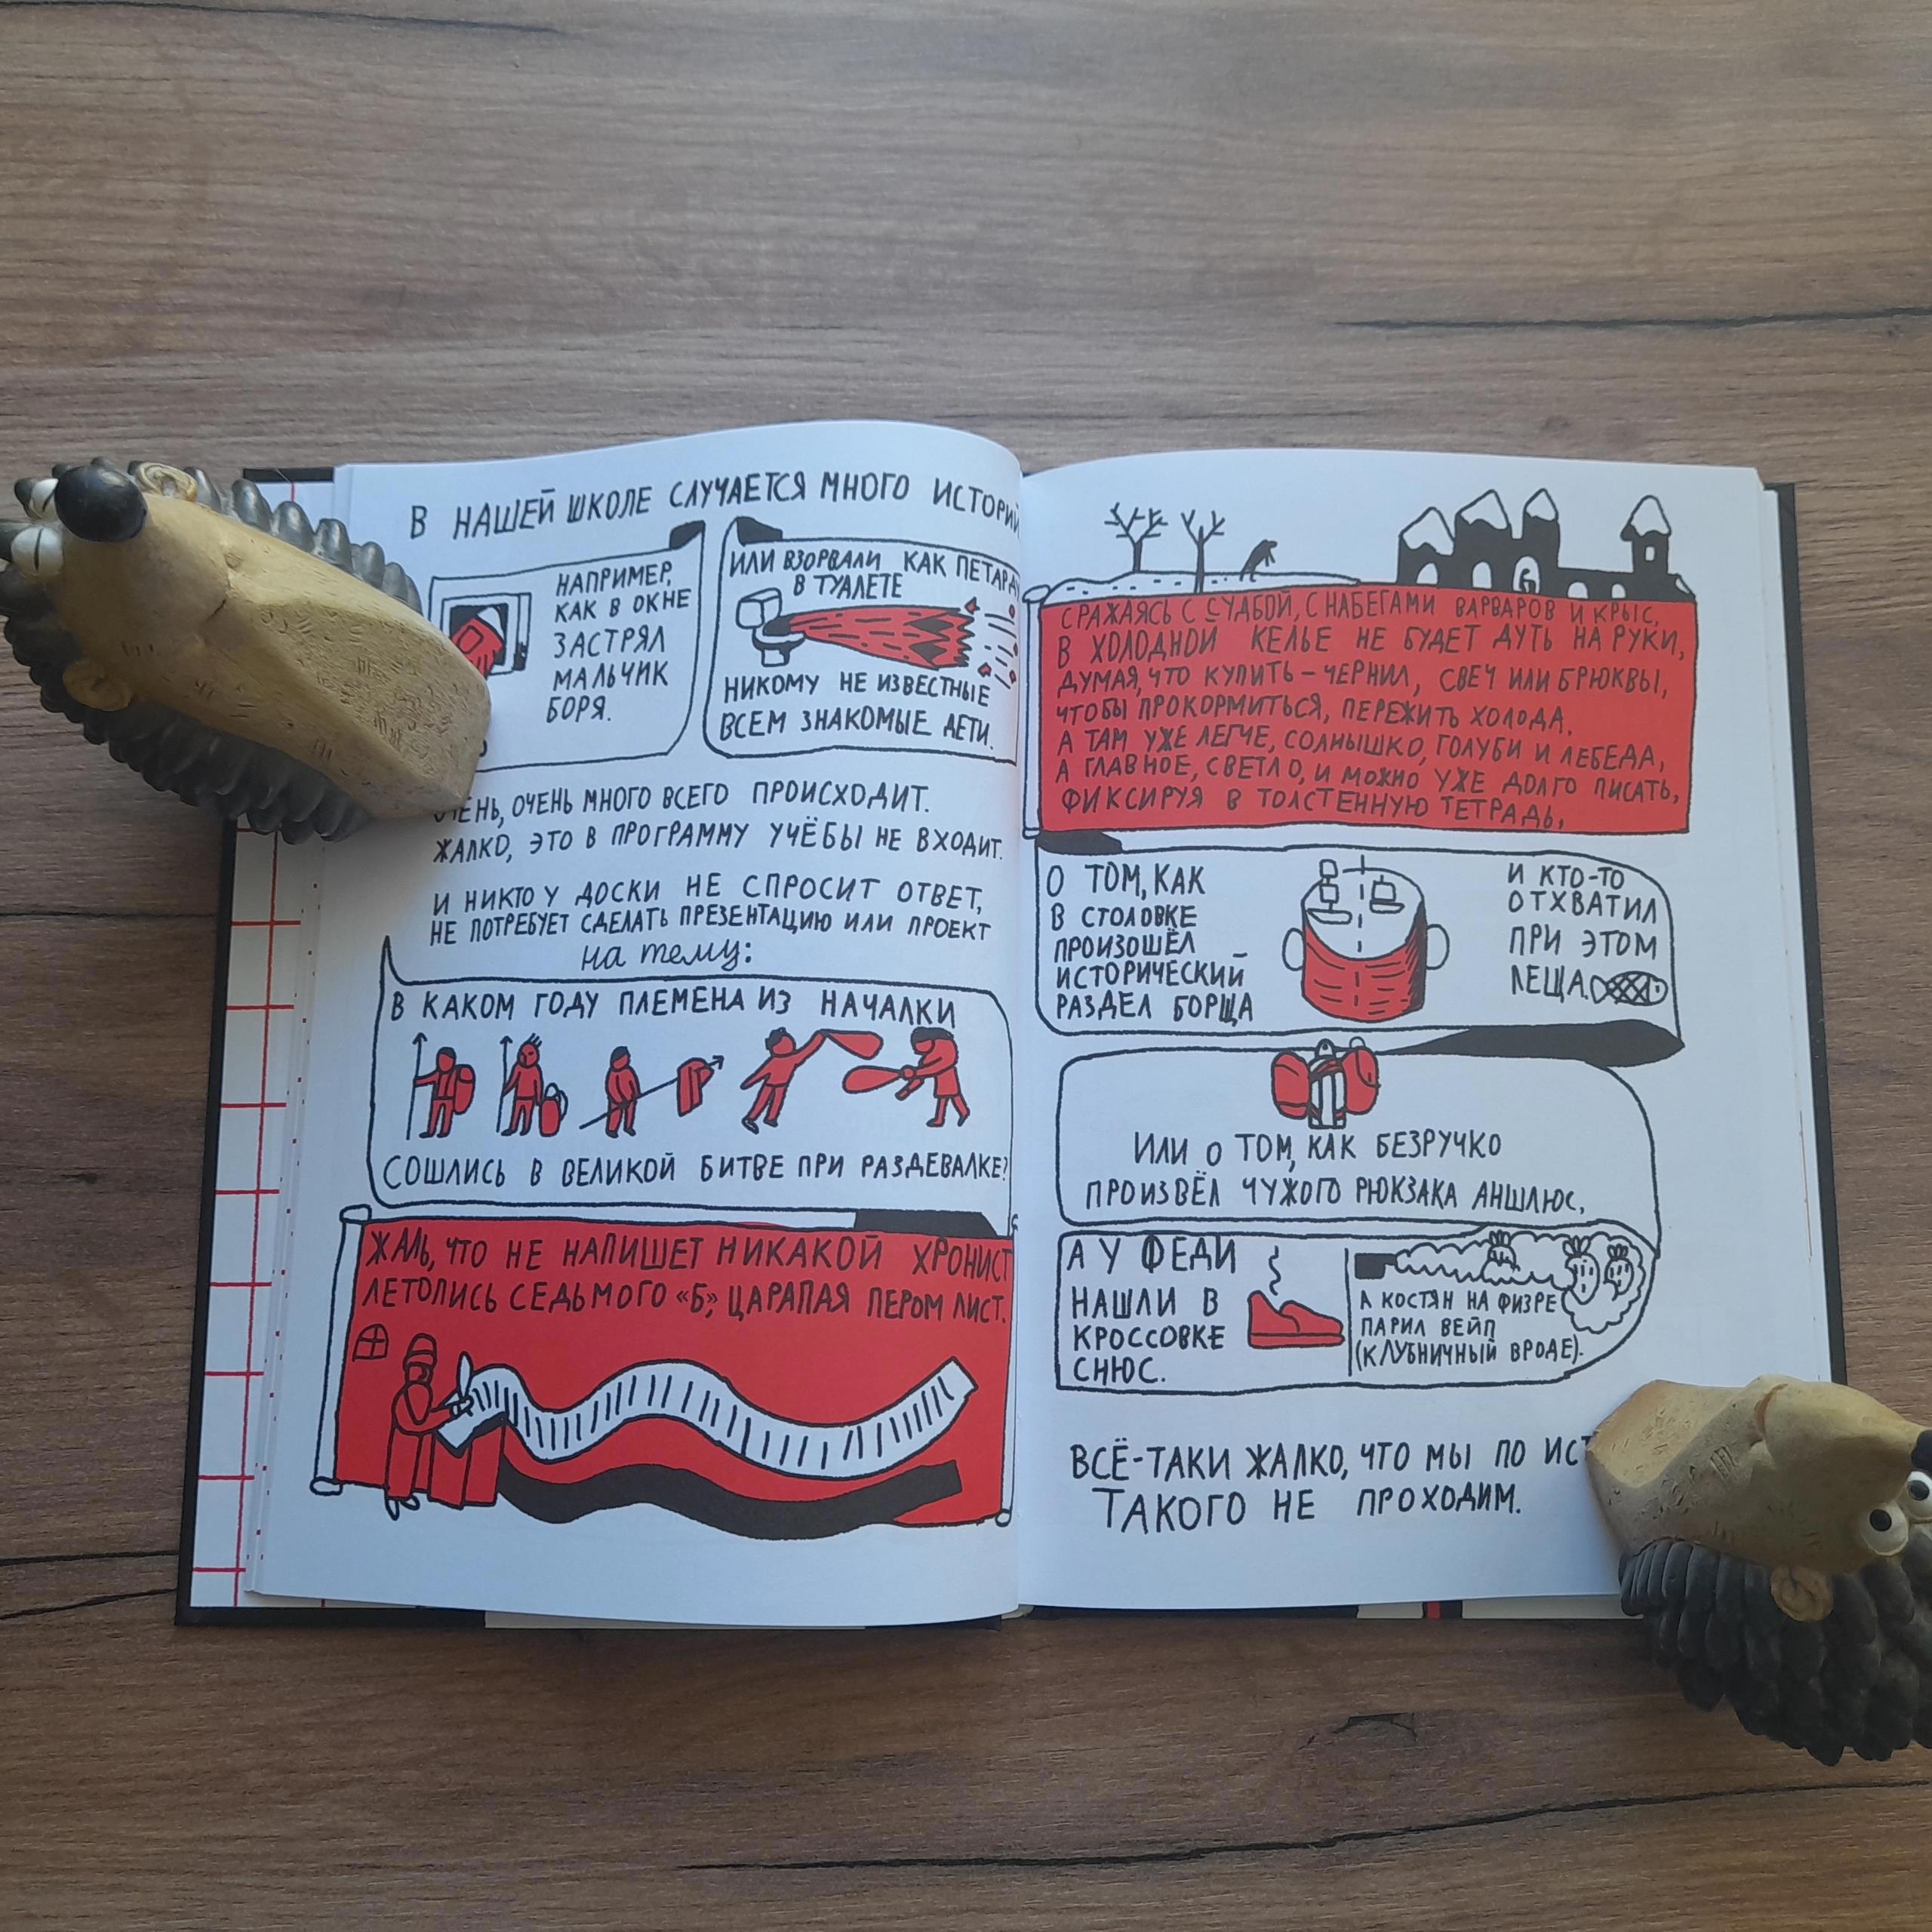 В НАШЕЙ ШКОЛЕ СЛУЧАЕТСЯ МНОГО ИСТОРИЙ
НАПРИМЕР,
КАК В ОКНЕ
ЗАСТРЯЛ
МАЛЬЧИК
БОРЯ.
ИЛИ ВЗОРВАЛИ КАК ПЕТАРДУ
В ТУАЛЕТЕ
НИКОМУ НЕ ИЗВЕСТНЫЕ
ВСЕМ ЗНАКОМЫЕ ДЕТИ.
ОЧЕНЬ, ОЧЕНЬ МНОГО ВСЕГО ПРОИСХОДИТ.
ЖАЛКО, ЭТО В ПРОГРАММУ УЧЁБЫ НЕ ВХОДИТ.
И НИКТО У ДОСКИ НЕ СПРОСИТ ОТВЕТ,
НЕ ПОТРЕБУЕТ СДЕЛАТЬ ПРЕЗЕНТАЦИЮ ИЛИ ПРОЕКТ
на тему:
В КАКОМ ГОДУ ПЛЕМЕНА ИЗ НАЧАЛКИ
СОШЛИСЬ В ВЕЛИКОЙ БИТВЕ ПРИ РАЗДЕВАЛКЕ?
ЖАЛЬ, ЧТО НЕ НАПИШЕТ НИКАКОЙ ХРОНИСТ
ЛЕТОПИСЬ СЕДЬМОГО «Б», ЦАРАПАЯ ПЕРОМ ЛИСТ.
СРАЖАЯСЬ С СУДЬБОЙ, С НАБЕГАМИ ВАРВАРОВ И КРЫС,
В ХОЛОДНОЙ КЕЛЬЕ НЕ БУДЕТ ДУТЬ НА РУКИ,
ДУМАЯ, ЧТО КУПИТЬ – ЧЕРНИЛ, СВЕЧ ИЛИ БРЮКВЫ,
ЧТОБЫ ПРОКОРМИТЬСЯ, ПЕРЕЖИТЬ ХОЛОДА.
А ТАМ УЖЕ ЛЕГЧЕ, СОЛНЫШКО, ГОЛУБИ И ЛЕБЕДА,
А ГЛАВНОЕ, СВЕТЛО, И МОЖНО УЖЕ ДОЛГО ПИСАТЬ,
ФИКСИРУЯ В ТОЛСТЕННУЮ ТЕТРАДЬ,
О ТОМ, КАК
В СТОЛОВКЕ
ПРОИЗОШЁЛ
ИСТОРИЧЕСКИЙ
РАЗДЕЛ БОРЩА
И КТО-ТО
ОТХВАТИЛ
ПРИ ЭТОМ
ЛЕЩА.
ИЛИ О ТОМ, КАК БЕЗРУЧКО
ПРОИЗВЁЛ ЧУЖОГО РЮКЗАКА АНШЛЮС,
А У ФЕДИ
НАШЛИ В
КРОССОВКЕ
СНЮС.
А КОСТЯН НА ФИЗРЕ
ПАРИЛ ВЕЙП
(КЛУБНИЧНЫЙ ВРОДЕ).
ВСЁ-ТАКИ ЖАЛКО, ЧТО МЫ ПО ИСТ
ТАКОГО НЕ ПРОХОДИМ.